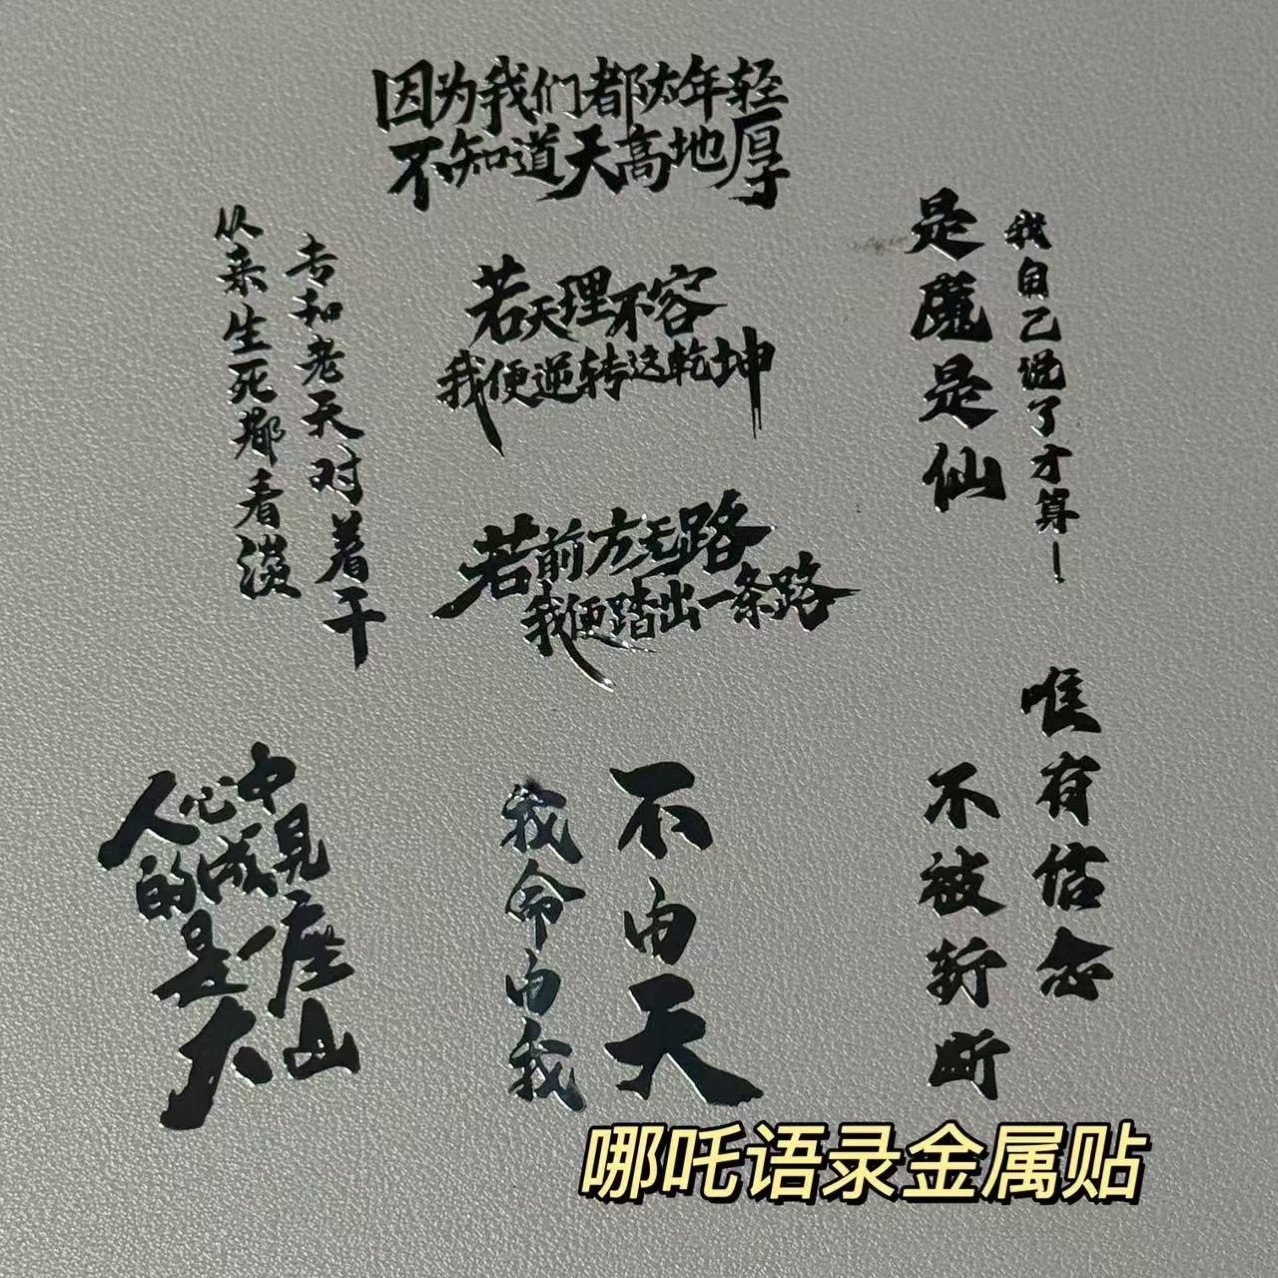 因为我们都太年轻
不知道天高地厚
从来生死都看淡
专和老天对着干
若天理不容
我便逆转这乾坤
是魔是仙
我自己说了才算！
若前方无路
我便踏出一条路
人心中
的成见
是一座
大山
我命由我
不由天
唯有信念
不被斩断
哪吒语录金属贴